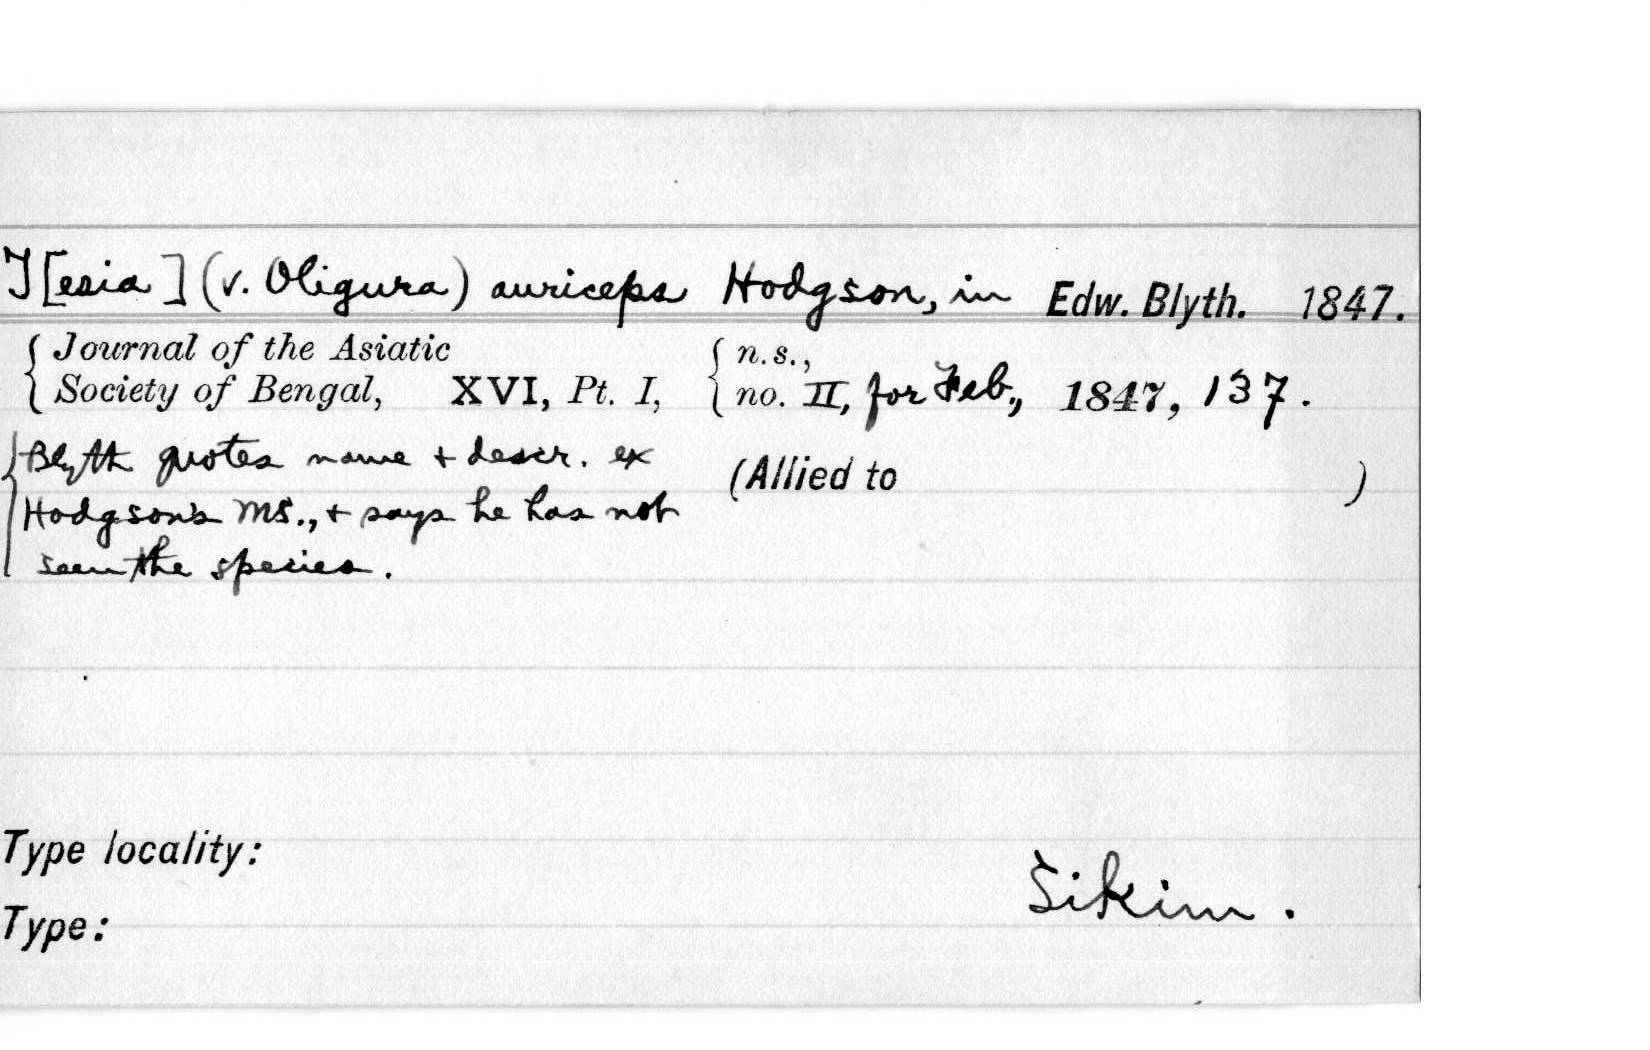 T[esia] (v. Oligura) auriceps Hodgson, in Edw. Blyth. 1847.
Journal of the Asiatic Society of Bengal, XVI, Pt. I, n.s., no. II, for Feb., 1847, 137.
Blyth quotes name + descr. ex
Hodgson's MS., + says he has not
seen the species.
(Allied to )
Type locality:
Sikim.
Type: